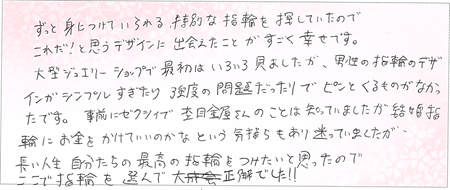 ずっと身につけていられる特別な指輪を探していたので
これだ！と思うデザインに出会えたことがすごく幸せです。
大型ジュエリーショップで最初はいろいろ見ましたが、男性の指輪のデザ
インがシンプルすぎたり強度の問題だったりでピンとくるものがなかっ
たです。事前にゼクシィで杢目金屋さんのことは知っていましたが結婚指
輪にお金をかけていいのかなという気持ちもあり迷っていましたが、
長い人生自分たちの最高の指輪をつけたいと思ったので
ここで指輪を選んで大正解でした!!